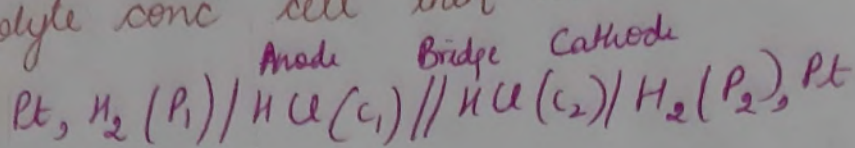 olyte conc cell
Anode Bridge Cathode
Pt, H₂ (P₁) / HCl (C₁) // HCl (C₂) / H₂ (P₂), Pt